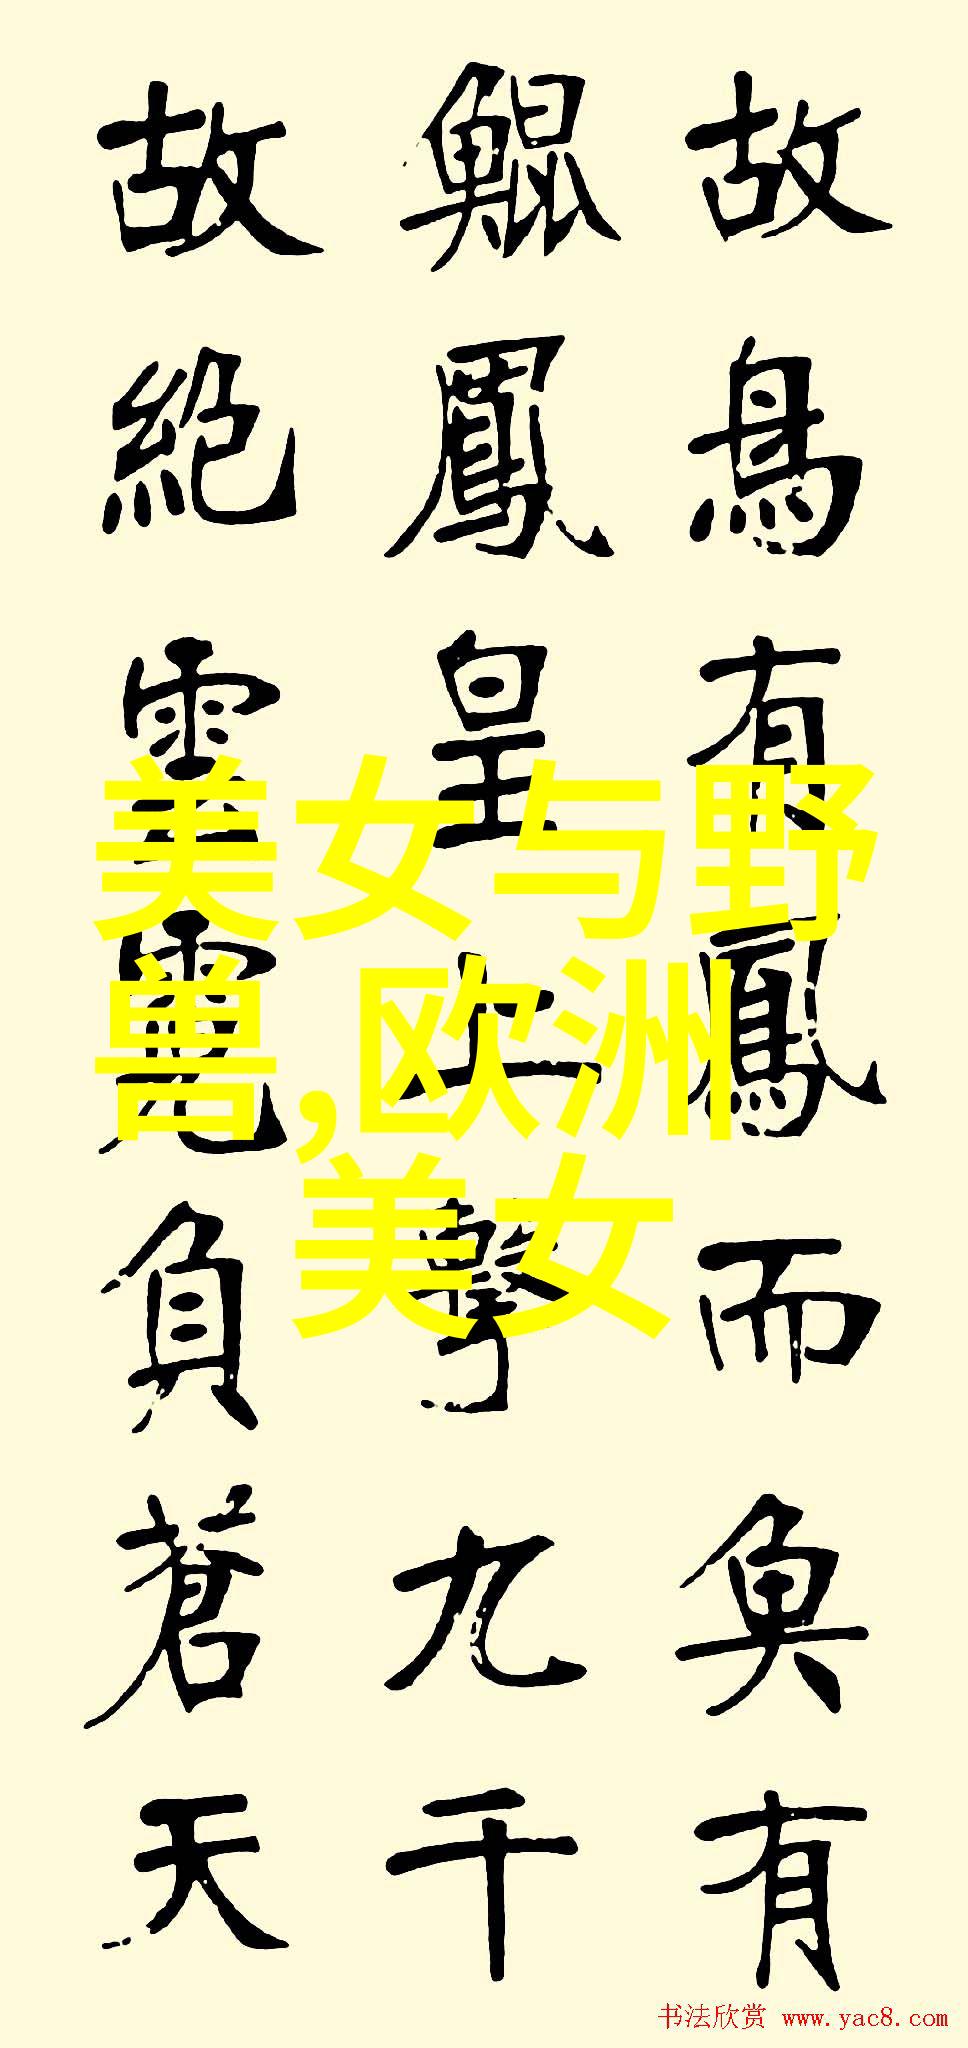 故鳥有鳳而魚有
鯤鳳皇上擊九千
故絕雲霓負蒼天
美女与野
兽,欧洲
美女
书法欣赏 www.yac8.com